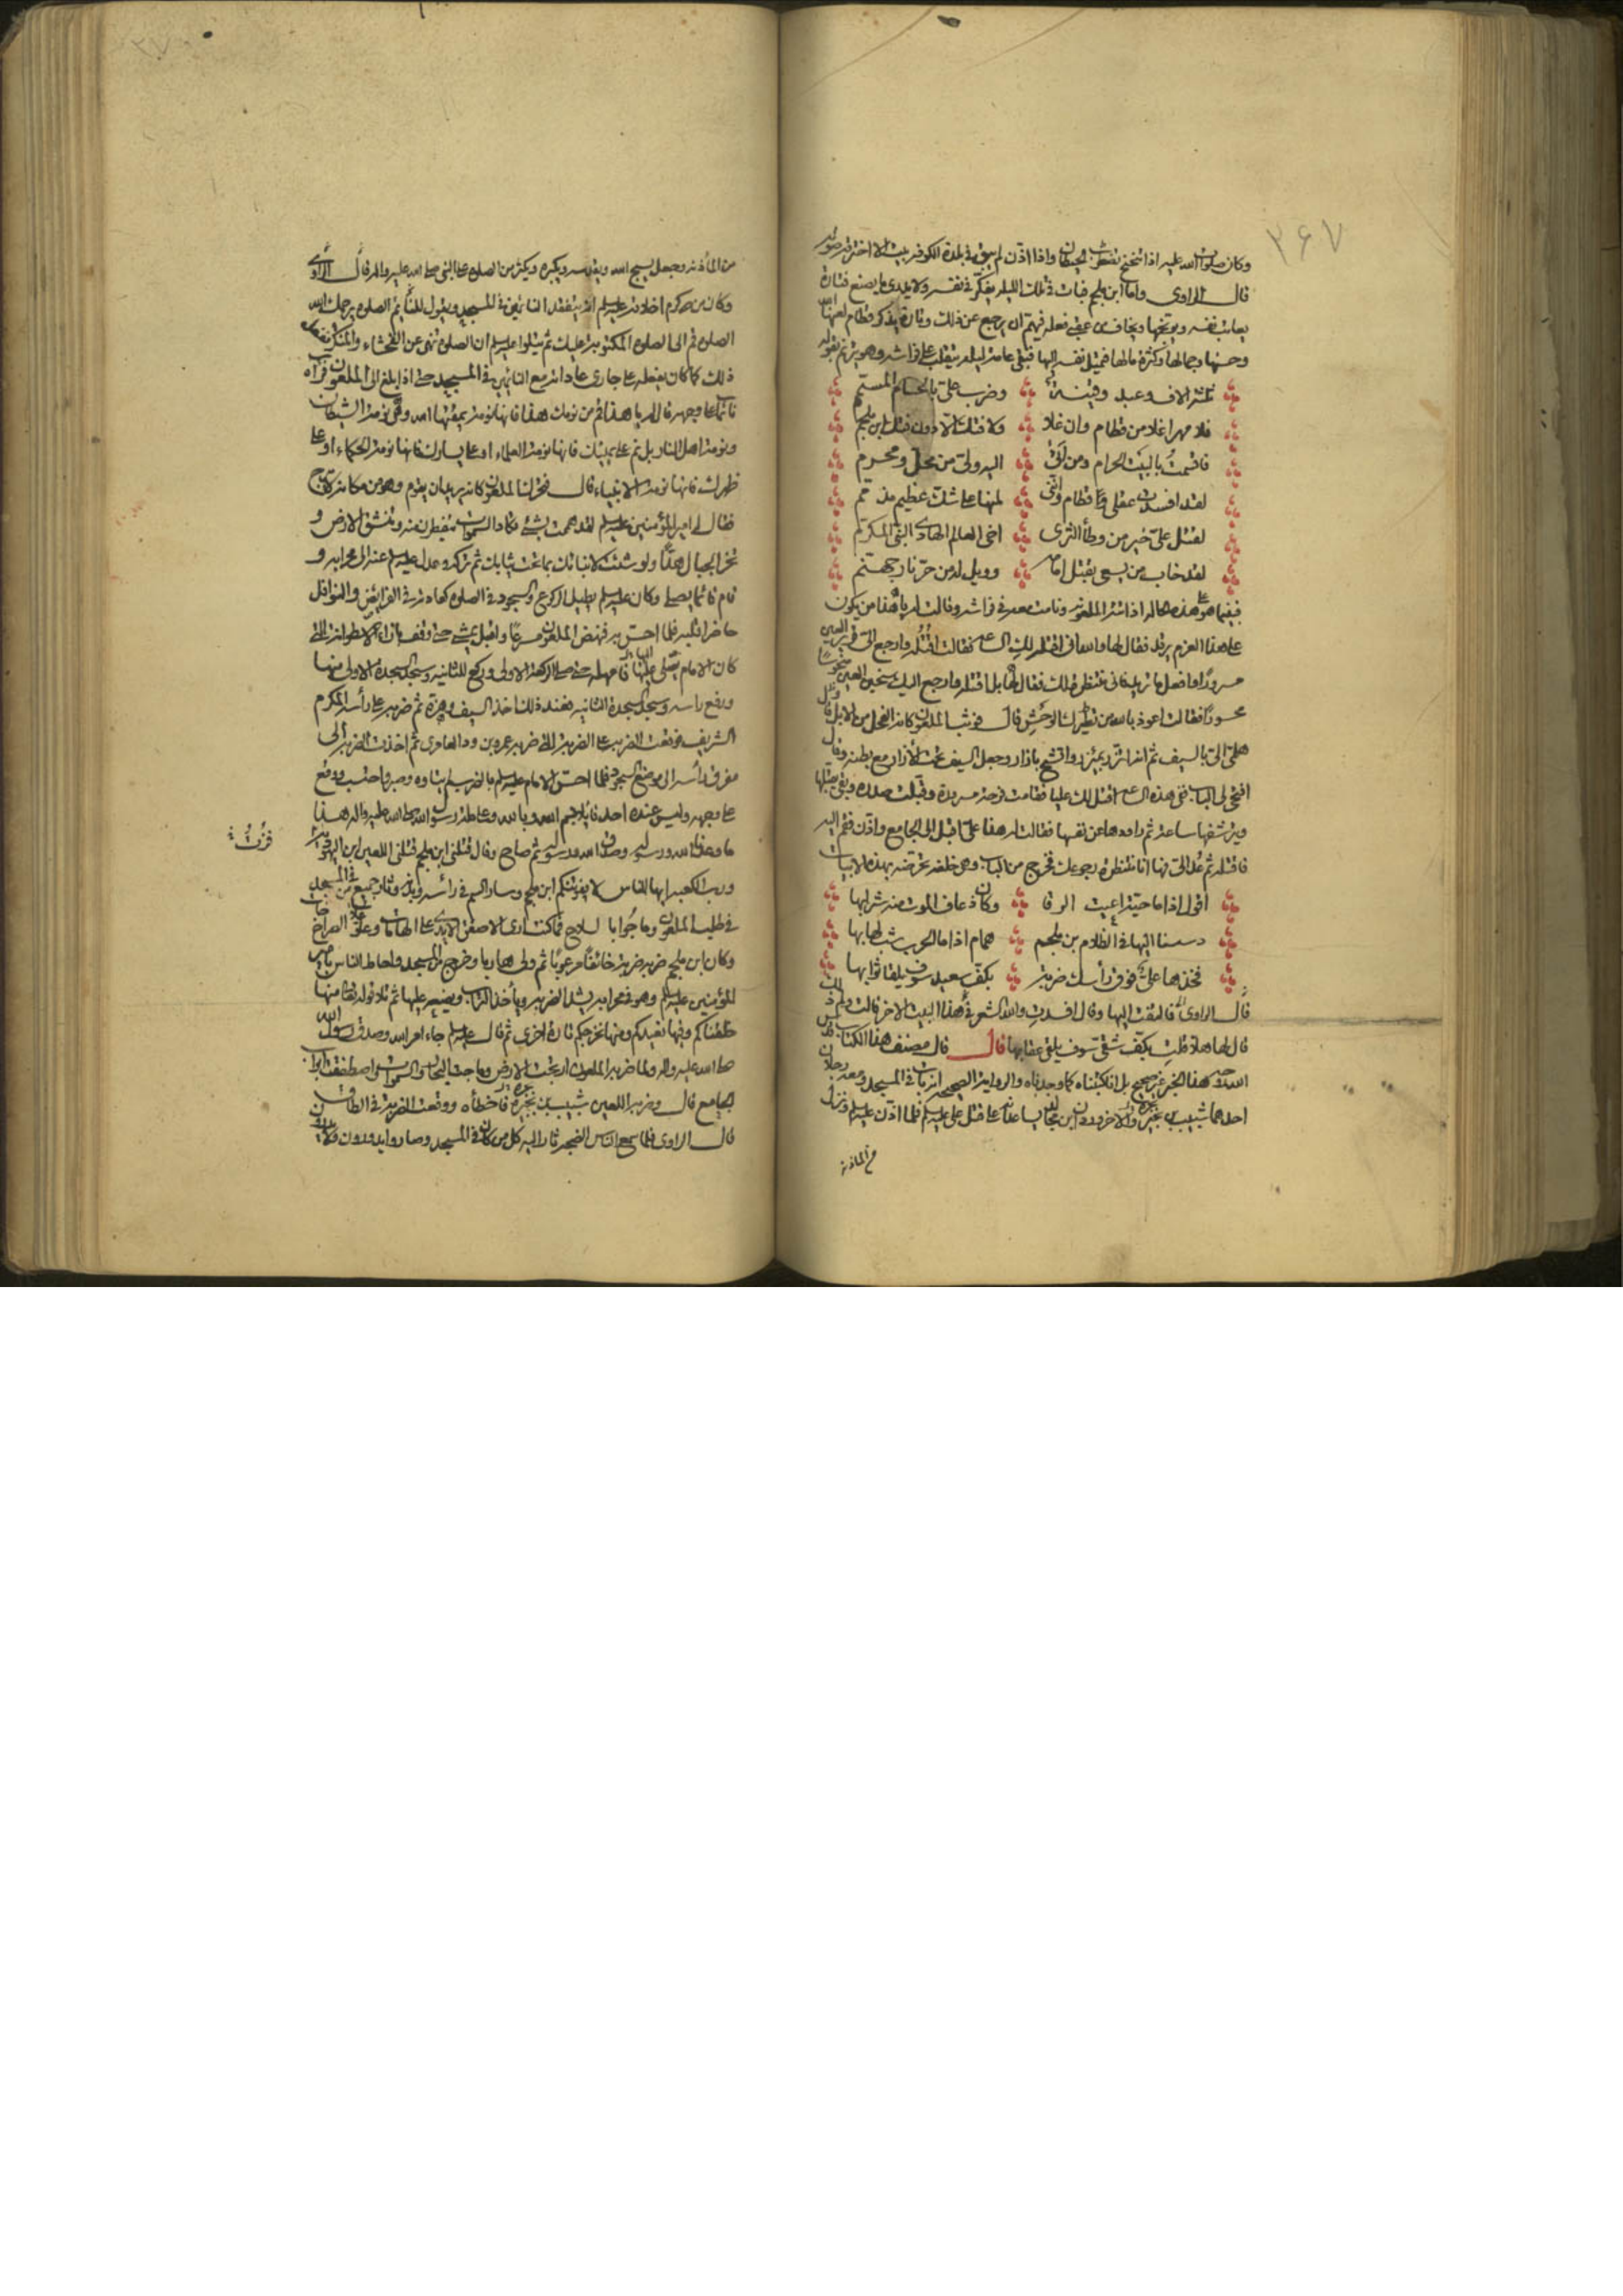 ۲۶۷
وكان صلوات الله عليه اذا تنحنح تقطرت الحيطان واذا اذن لم يبق فى بلدة الكوفة بيت الا اخترقه صوته
قال الراوى واما ابن ملجم فبات فى تلك الليلة يفكر فى نفسه ولا يدرى ما يصنع فتارة
يعاتب نفسه ويوبخها ويخاف من عقبى فعله فيهم ان يرجع عن ذلك وتارة يذكر قطام لعنها الله
وحسنها وجمالها وكثرة مالها فتميل نفسه اليها فبقى عامة ليله يتقلب على فراشه وهو يترنم بقوله
ثلثة الاف وعبد وقينة وضرب على بالحسام المسمم
فلا مهر اغلا من قطام وان غلا ولا فتك الا دون فتك ابن ملجم
فاقسمت بالبيت الحرام ومن اتى اليه ولبى من محل ومحرم
لقد افسدت عقلى قطام واننى لمنها على شك عظيم مذمم
لقتل على خير من وطأ الثرى اخى العالم الهادى النبى المكرم
لقد خاب من يسعى بقتل امامه وويل له من حر نار جهنم
فبينما هو على هذه الحالة اذ اتته الملعونة ونامت معه فى فراشه وقالت له يا هذا من يكون
على هذا العزم يرقد فقال لها والله انى اقتله لك الساعة فقالت اقتله وارجع الى قرير العين
مسرورا وافعل ما تريد فانى منتظرة لك فقال لها بل اقتله وارجع اليك سخين العين منحوسا
محسورا فقالت اعوذ بالله من تطيرك الوحش قال فوثب الملعون كانه الفحل من الابل قال
هلمى الى بالسيف ثم انه اتزر بمئزر واتشح بازار وجعل السيف تحت الازار مع بطنه وقال
افتحى لى الباب ففى هذه الساعة اقتل لك عليا فقامت فرحة مسرورة وقبلت صدره وبقى يقبلها
ويترشفها ساعة ثم راودها عن نفسها فقالت له هذا على اقبل الى الجامع واذن فقم اليه
فاقتله ثم عد الى فها انا منتظرة رجوعك فخرج من الباب وهى خلفه تحرضه بهذه الابيات
اقول اذا ما حية اعيت الرقا وكان ذعاف الموت منه شرابها
دسسنا اليها فى الظلام بن ملجم همام اذا ما الحرب شب لهابها
فخذها على فوق رأسك ضربة بكف سعيد سوف يلقى ثوابها
قال الراوى فالتفت اليها وقال افسدت والله الشعر فى هذا البيت الاخر قالت ولم ذلك
قال لها هلا قلت بكف شقى سوف يلقى عقابها قال قال مصنف هذا الكتاب قدس
الله روحه هذا الخبر غير صحيح بل انا كتبناه كما وجدناه والرواية الصحيحة انه بات فى المسجد ومعه رجلان
احدهما شبيب بن بجرة والاخر وردان ابن مجالد يساعدانه على قتل على عليه السلم فلما اذن عليه السلم ونزل
من الماذنة
من المأذنة وجعل يسبح الله ويقدسه ويكبره ويكثر من الصلوة على النبى صلى الله عليه واله قال الراوى
وكان من كرم اخلاقه عليه السلم انه يتفقد النائمين فى المسجد ويقول للنائم الصلوة يرحمك الله
الصلوة قم الى الصلوة المكتوبة عليك ثم يتلوا عليه السلم ان الصلوة تنهى عن الفحشاء والمنكر ففعل
ذلك كما كان يفعله على جارى عاداته مع النائمين فى المسجد حتى اذا بلغ الى الملعون فرآه
نائما على وجهه قال له يا هذا قم من نومك هذا فانها نومة يمقتها الله وهى نومة الشيطان
ونومة اهل النار بل نم على يمينك فانها نومة العلماء او على يسارك فانها نومة الحكماء او على
ظهرك فانها نومة الانبياء قال فتحرك الملعون كانه يريد ان يقوم وهو من مكانه لا يبرح
فقال له امير المؤمنين عليه السلم لقد هممت بشئ تكاد السموات يتفطرن منه وتنشق الارض و
تخر الجبال هدا ولو شئت لانبأتك بما تحت ثيابك ثم تركه وعدل عليه السلم عنه الى محرابه و
قام قائما يصلى وكان عليه السلم يطيل الركوع والسجود فى الصلوة كعادته فى الفرايض والنوافل
حاضرا قلبه فلما احس به فنهض الملعون مسرعا واقبل يمشى حتى وقف بازاء الاسطوانة التى
كان الامام يصلى عليها فامهله حتى صلى الركعة الاولى وركع للثانية وسجد السجدة الاولى منها
ورفع راسه وسجد السجدة الثانية فعند ذلك اخذ السيف وهزه ثم ضربه على رأسه المكرم
الشريف فوقعت الضربة على الضربة التى ضربه عمرو بن ود العامرى ثم اخذت الضربة الى
مفرق رأسه الى موضع السجود فلما احس الامام عليه السلم بالضرب لم يتاوه وصبر واحتسب ووقع
على وجهه وليس عنده احد قايلا بسم الله وبالله وعلى ملة رسول الله صلى الله عليه واله هذا
ما وعدنا الله ورسوله وصدق الله ورسوله ثم صاح وقال قتلنى ابن ملجم قتلنى اللعين ابن اليهودية
فزت
ورب الكعبة ايها الناس لا يفوتنكم ابن ملجم وسار السم فى رأسه وبدنه وثار جميع من فى المسجد
فى طلب الملعون وماجوا بالسلاح فما كنت ارى الا صفق الايدى على الهامات وعلو الصراخ
وكان ابن ملجم ضربه ضربة خائفا مرعوبا ثم ولى هاربا وخرج من المسجد واحاط الناس بامير
المؤمنين عليه السلم وهو فى محرابه يشد الضربة ويأخذ التراب ويضعه عليها ثم تلا قوله تعالى منها
خلقناكم وفيها نعيدكم ومنها نخرجكم تارة اخرى ثم قال عليه السلم جاء امر الله وصدق رسول الله
صلى الله عليه واله ولما ضربه الملعون ارتجت الارض وماجت البحار والسموات واصطفقت ابواب
الجامع قال وضربه اللعين شبيب بن بجرة فاخطأه ووقعت الضربة فى الطاق
قال الراوى فلما سمع الناس الضجة ثار اليه كل من كان فى المسجد وصاروا يدورون ولا يدرون